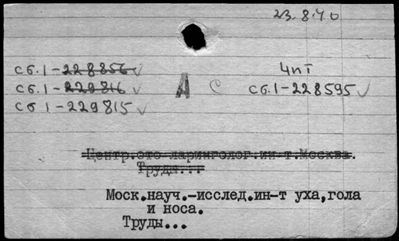 23.8.40
Сб.1-228856 ✓ 4пТ
Сб.1-229816 ✓ А С Сб.1-228595 ✓
Сб 1-229815 ✓
Центр.ото-ларинголог.ин-т.Москва.
Труды...
Моск.науч.-исслед.ин-т уха,гола
и носа.
Труды...